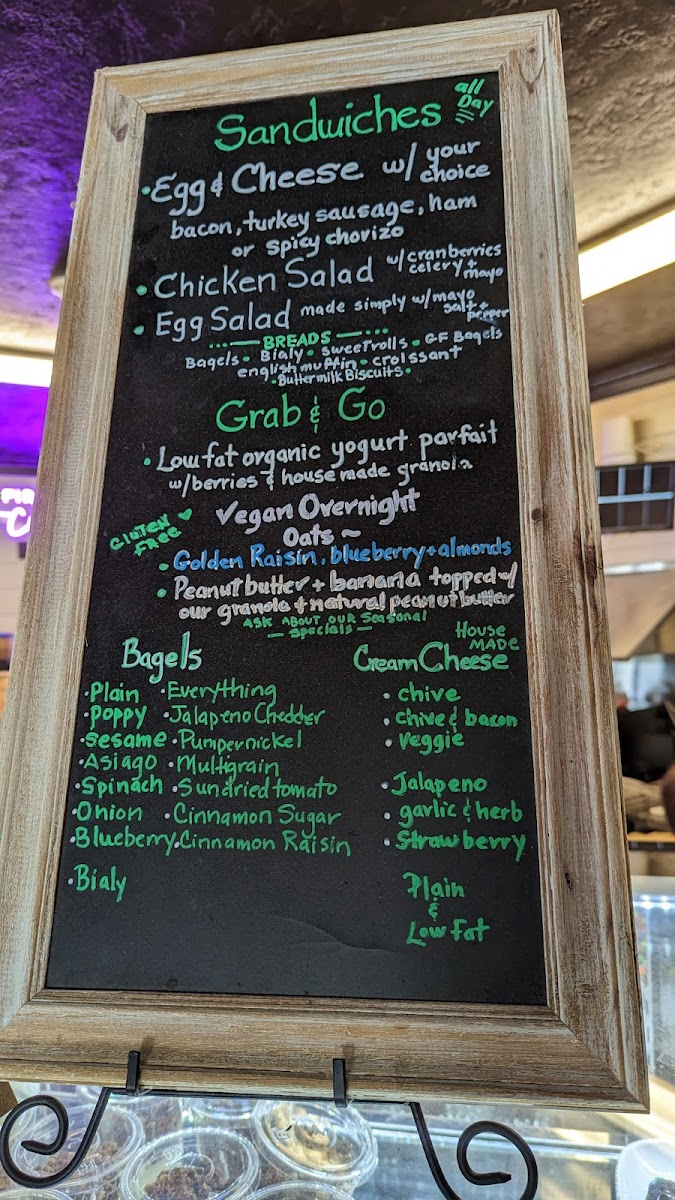 Sandwiches all Day
• Egg & Cheese w/ your choice
bacon, turkey sausage, ham
or spicy chorizo
• Chicken Salad w/cranberries celery + mayo
• Egg Salad made simply w/mayo salt + pepper
...— BREADS —...
Bagels • Bialy • sweet rolls • GF Bagels
english muffin • croissant
• Buttermilk Biscuits •
Grab & Go
• Low fat organic yogurt parfait
w/berries & house made granola
Vegan Overnight
Oats ~
Gluten Free
• Golden Raisin, blueberry + almonds
• Peanut butter + banana topped w/
our granola + natural peanut butter
ASK ABOUT OUR Seasonal
— specials —
Bagels
• Plain • Everything
• Poppy • Jalapeno Chedder
• Sesame • Pumpernickel
• Asiago • Multigrain
• Spinach • Sundried tomato
• Onion • Cinnamon Sugar
• Blueberry • Cinnamon Raisin
• Bialy
House MADE
Cream Cheese
• chive
• chive & bacon
• veggie
• Jalapeno
• garlic & herb
• Strawberry
Plain
&
Low fat